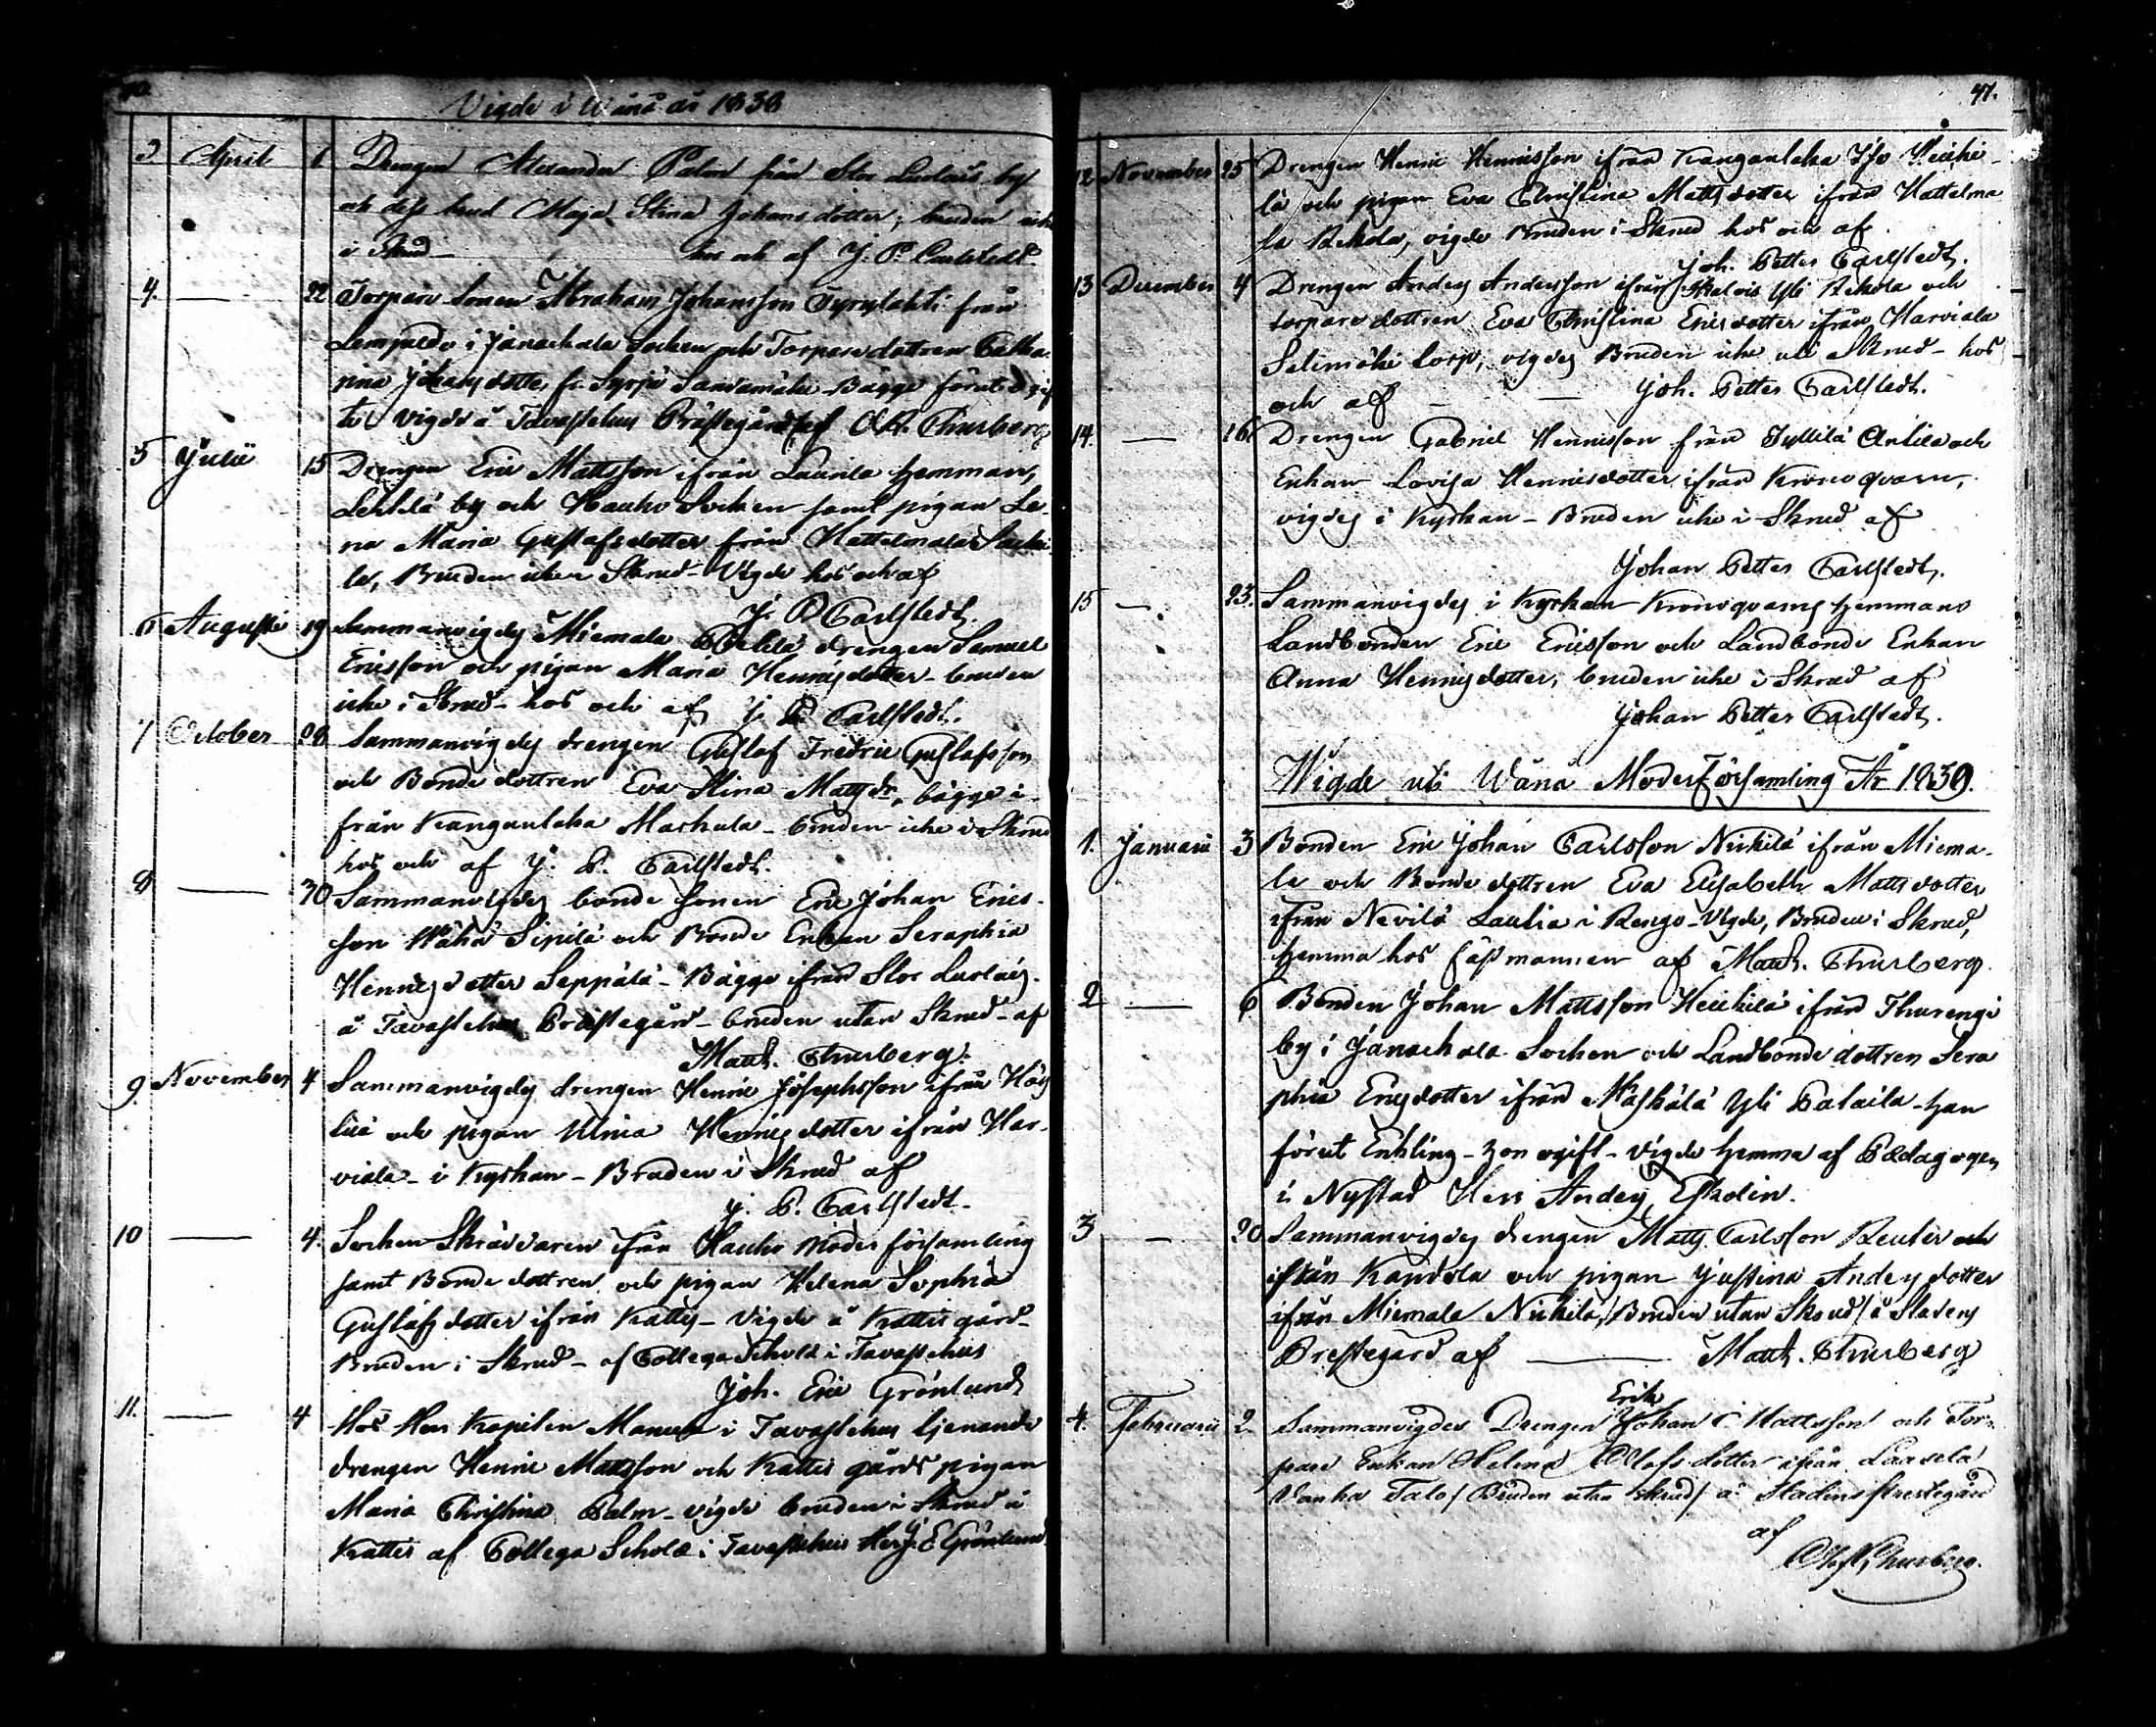 Vigde i Wånå år 1838
3 April 1 Drengen Alexander Palm från Stor Luolais by
och dess brud Maja Stina Johansdotter, bruden icke
i Skrud - hos och af J. P. Carlstedt.
4. — 22 Torpare Sonen Abraham Johansson Syrjelahti från
i Janackala Socken och Torpare dottren Catha
rina Johansdotter fr. Syrjä Sandamäki - Bägge förut ogif
te vigde å Tavastehus Prästegård af O. R. Thurberg
5 Julii 15 Drengen Eric Mattsson ifrån Laurila hemman,
by och Hauho Socken samt pigan Le-
na Maria Gustafsdotter från Hattelmala
la, Bruden icke i Skrud - Vigde hos och af
J. P. Carlstedt.
6 Augusti 19 Sammanvigdes Miemala drengen Samuel
Ericsson och pigan Maria Henricsdotter - bruden
icke i Skrud - hos och af J. P. Carlstedt.
7 October 28 Sammanvigdes drengen Gustaf Fredric Gustafsson
och Bonde dottren Eva Stina Mattsdr, bägge i-
från Kanganlaka Markula - bruden icke i Skrud
hos och af J. P. Carlstedt.
8 — 30 Sammanvigdes bonde sonen Eric Johan Erics-
son Wähä Sipilä och Bonde Enkan Seraphia
Henricsdotter Seppälä - Bägge ifrån Stor Luolais.
å Tavastehus Prästegård - bruden utan Skrud - af
Matth. Thurberg.
9 November 4 Sammanvigdes drengen Henric Josephsson ifrån
och pigan Henricsdotter ifrån Har-
viala - i Kyrkan - Bruden i Skrud af
J. P. Carlstedt.
10 — 4. Socken Skräddaren ifrån Hauho Moder församling
samt Bonde dottren och pigan Helena Sophia
Gustafsdotter ifrån Kattis - Vigde å Kattis gård -
Bruden i Skrud - af Collega Scholæ i Tavastehus
Joh. Eric Grönlund
11. — 4 Hos Herr Kapiten i Tavastehus tjenande
drengen Henric Mattsson och Kattis gårds pigan
Maria Christina Palm - vigde bruden i Skrud å
Kattis af Collega Scholæ i Tavastehus Herr J. E Grönlund
41.
12 November 25 Drengen Henric Henricsson ifrån Kanganlaka Iso Heicki-
lä och pigan Eva Christina Mattsdotter ifrån Hattelma
la Rekola, vigde Bruden i Skrud hos och af
Joh. Petter Carlstedt.
13 December 4 Drengen Anders Andersson ifrån Yli Rekola och
torpare dottren Eva Christina Ericsdotter ifrån Harviala
Selimäki torp, vigdes Bruden icke uti Skrud - hos
och af — — Joh. Petter Carlstedt.
14. — 16. Drengen Gabriel Henricsson från Jyllilä Antila och
Enkan Lovisa Henricsdotter ifrån Kronoqvarn,
vigdes i Kyrkan - Bruden icke i Skrud af
Johan Petter Carlstedt.
15 — 23. Sammanvigdes i Kyrkan Kronoqvarns hemmans
Landbonden Eric Ericsson och Landbonde Enkan
Anna Henricsdotter, bruden icke i Skrud af
Johan Petter Carlstedt.
Wigde uti Wånå Moderförsamling År 1839.
1. Januarii 3 Bonden Eric Johan Carlsson Nickilä ifrån Miema-
la och Bonde dottren Eva Elisabeth Mattsdotter
ifrån Nevilä Laulia i Rengo - Vigde, Bruden i Skrud,
hemma hos fästmannen af Matth. Thurberg.
2 — 6 Bonden Johan Mattsson Heickilä ifrån Thurengi
by i Janackala Socken och Landbonde dottren Sera
phia Ericsdotter ifrån Yli - han
förut Enkling - hon ogift - vigde hemma af Pædagogen
i Nystad Herr Anders Eskolin.
3 — 20 Sammanvigdes drengen Matts Carlsson Reuter och
ifrån Kandola och pigan Justina Andersdotter
ifrån Miemala Nickilä, /Bruden utan Skrud/ å Stadens
Prestegård af — Matth. Thurberg
4. Februarii 2. Sammanvigdes Drengen Erik Johan Mattsson och Tor-
pare Enkan Helena Olofsdotter ifrån
Vanha Talo / Bruden utan skrud / å Stadens Prestegård
af
Thurberg.